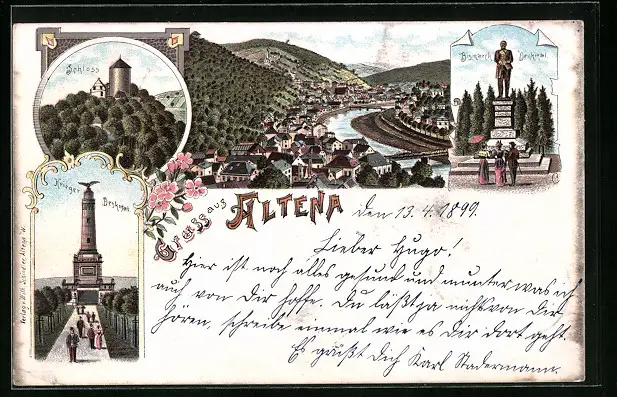 Schloss
Bismarck Denkmal
Krieger Denkmal
Gruss aus ALTENA
den 13.4.1899.
Lieber Hugo!
Hier ist noch alles gesund und munter was ich
auch von Dir hoffe. Du läßt ja nichts von Dir
hören, schreibe einmal wie es Dir dort geht.
Es grüßt Dich Karl Stadermann.
Verlag v. Wilh.
Altena i/W.